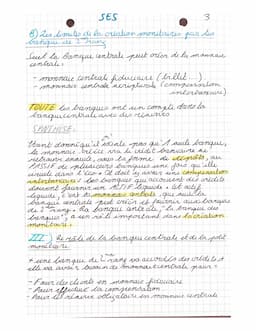 SES
3
B) Les limites de la création monétaire par les
banques de 2nd rang
Seul la Banque centrale peut créer de la monnaie
centrale :
- monnaie centrale fiduciaire (billet...)
- monnaie centrale scripturale (compensation
interbancaire)
TOUTE les banques ont un compte dans la
banque centrale avec des réserves
SYNTHESE :
Étant donné qu'il existe pas qu'1 seule banque,
la monnaie créée via le crédit bancaire se
retrouve ensuite, sous la forme de dépôts, au
PASSIF de plusieurs banques une fois qu'elle
circule dans l'éco. Ce doit y avoir une compensation
interbancaire : les banques qui accordent des crédits
doivent fournir un ACTIF liquide. Cet actif
liquide, c'est la monnaie centrale, que seule la
banque centrale peut créer et fournir aux banques
de 2nd rang. La banque centrale, "la banque des
banques", a un rôle important dans la création
monétaire.
III) Le rôle de la banque centrale et de la polit
monétaire
* une banque de 2nd rang va accorder des crédits et
elle va avoir besoin de monnaie centrale pour :
- Fournir des clients en monnaie fiduciaire
- Pour effectuer la compensation
- Pour les réserves obligatoires en monnaie centrale